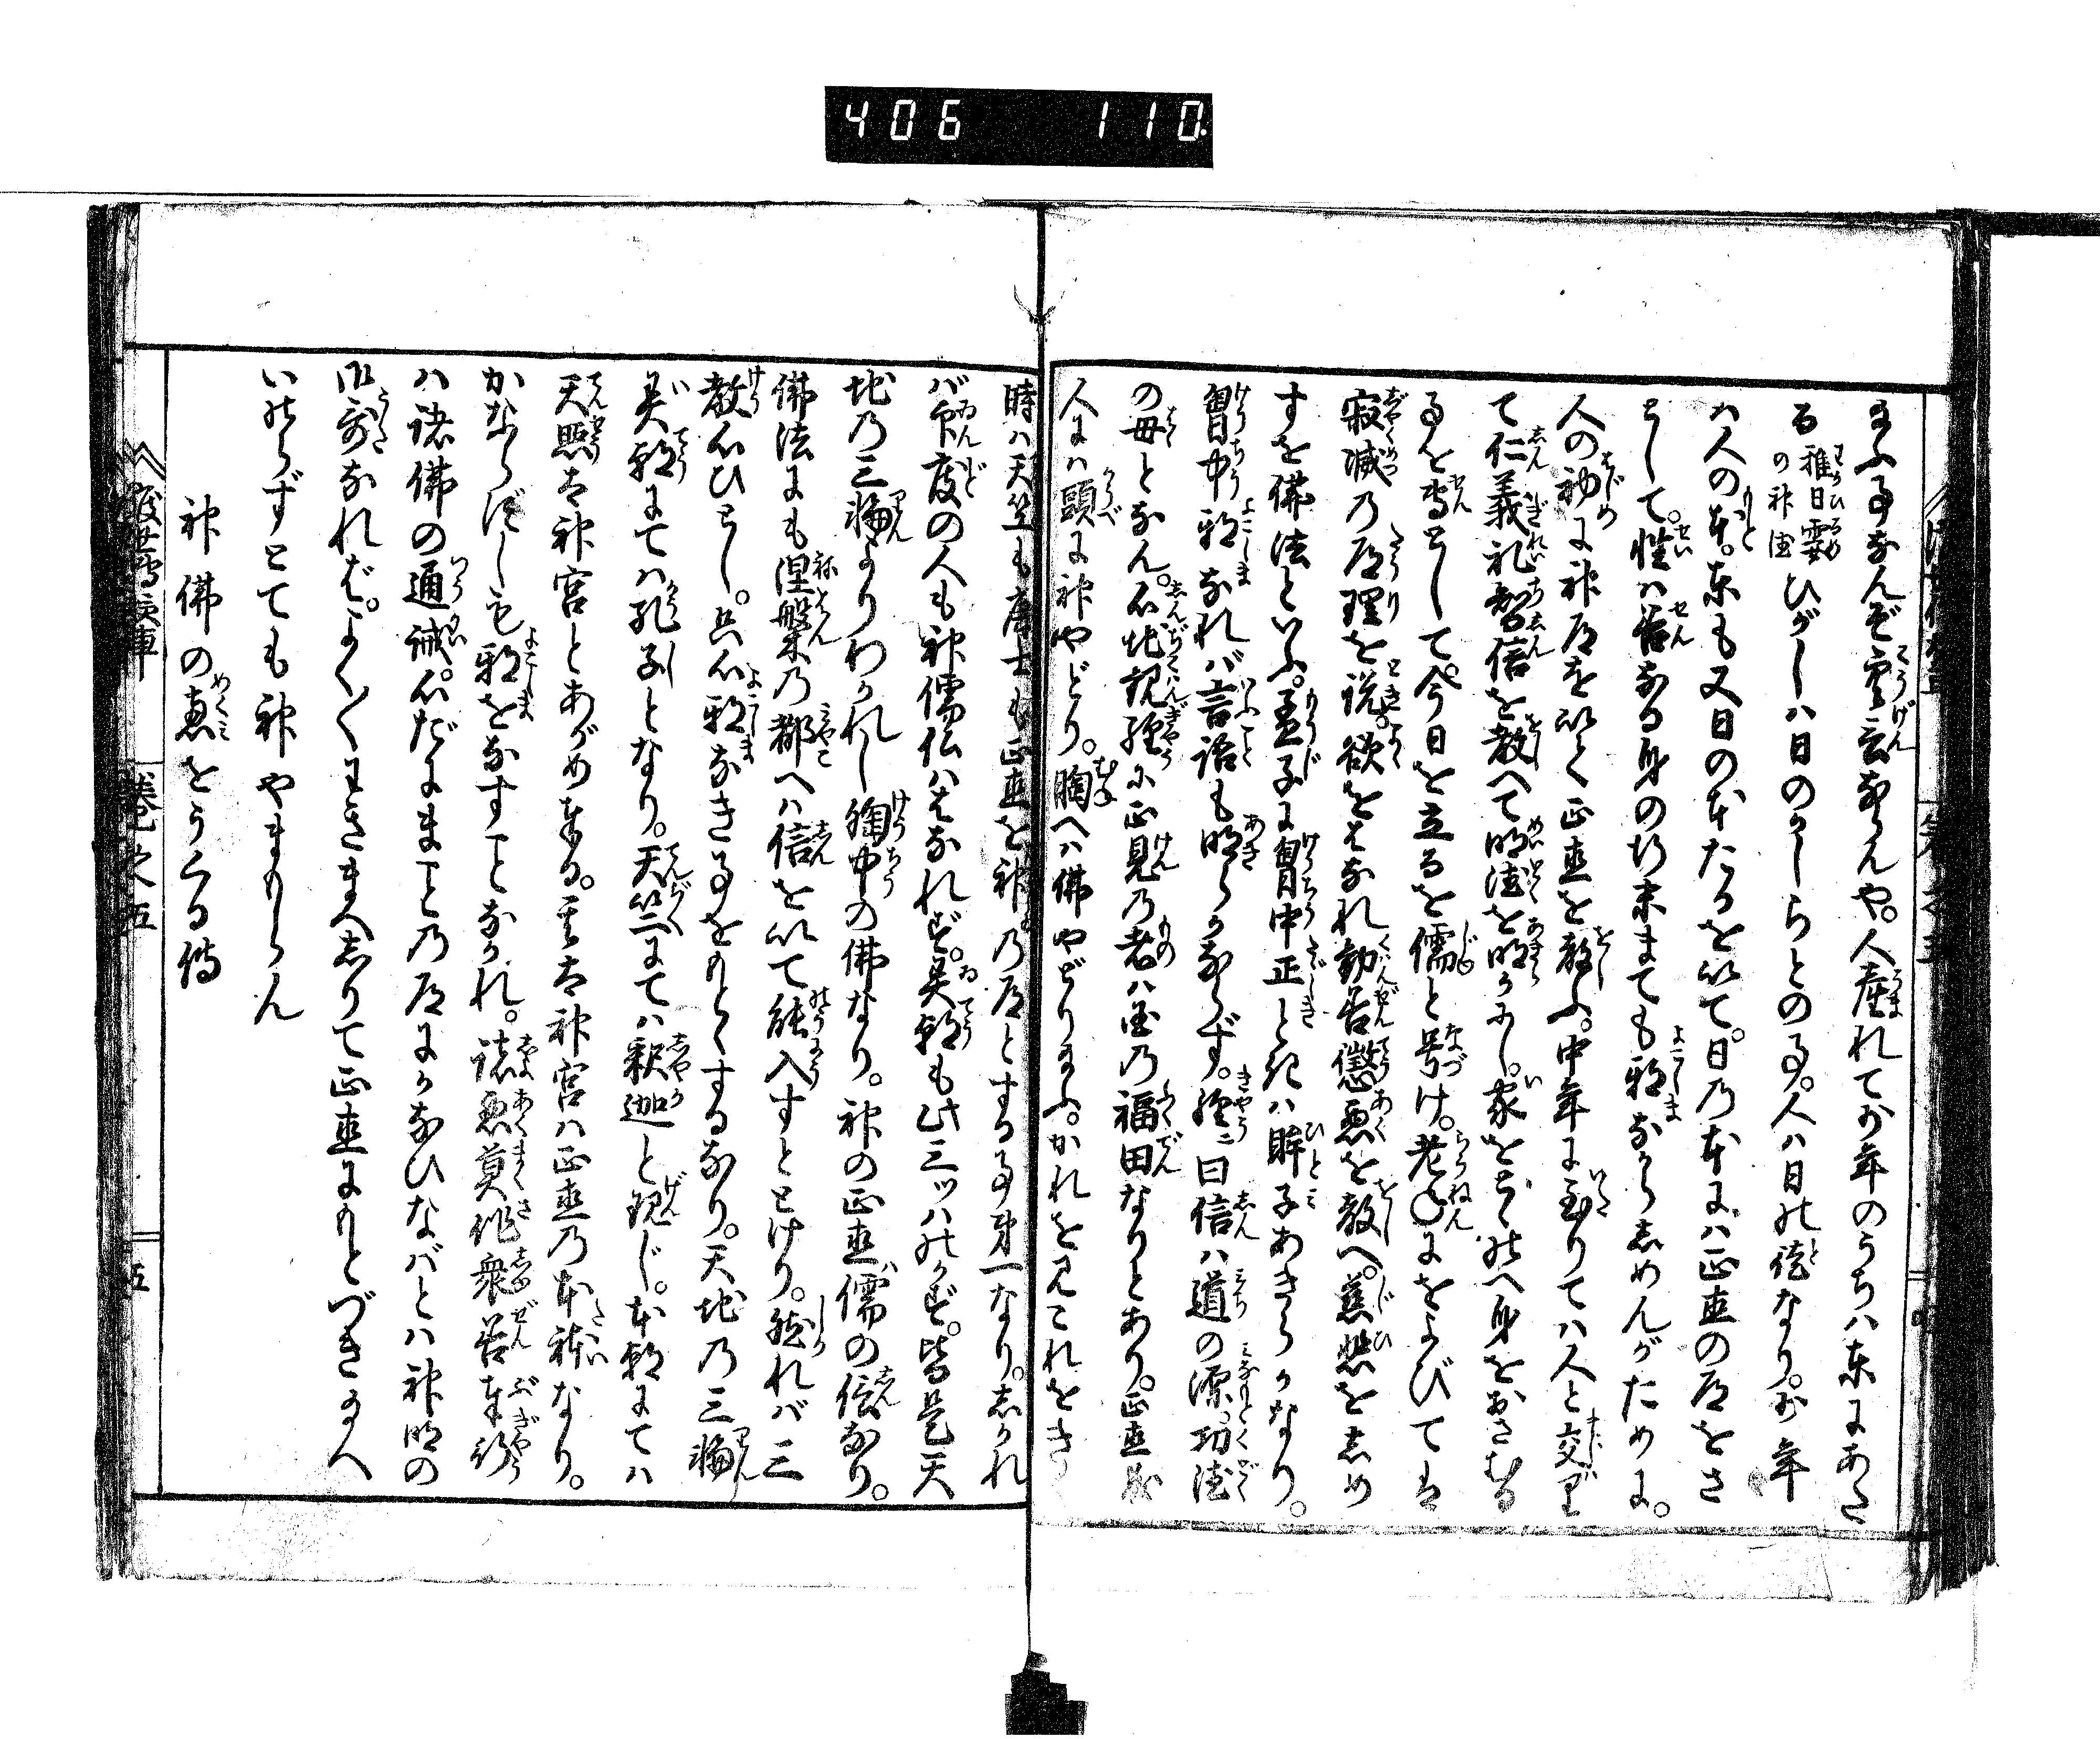 406 110
まふ事なんぞ雲言ならんや。人産れて少年のうちハ東にあた
る稚日霎の神徳ひがしハ日のかしらとの事。人ハ日の徳なり。少年
ハ人の本。東も又日の本たるを以て。日乃本にハ正直の道をさ
として。性ハ善なる身の行末までも邪ならしめんがために。
人の初に神道を以て正直を教ふ。中年に至りてハ人と交り
て仁義礼智信を教へて明徳を明かにし。家をとゝのへ身をおさむる
るを専として。今日を立るを儒と号け。老年におよびてハ
寂滅乃道理を説。欲をはなれ勧善懲悪を教へ。慈悲をしめ
すを佛法といふ。孟子に胸中正しきハ眸子あきらかなり。
胸中邪なれバ言語も明らかならず。経ニ曰信ハ道の源功徳
の母となん。心地観経ニ正見乃者ハ国乃福田なりとあり。正直
人にハ頭に神やどり。胸へハ佛やどりまふ。かれを見これをき
時ハ天竺も唐土も正直を神乃道とする事第一なり。しかれ
バ印度の人も神儒仏ハはなれず。異朝も此三ツハのがず。皆是天
地乃三輪よりわかれし胸中の佛なり。神の正直儒の信なり。
佛法にも涅槃乃都へハ信を以て能入すととけり。然れバ三
教心ひとし。只心邪なき事をもとゝするなり。天地乃三輪
異朝にてハ孔子となり。天竺にてハ釈迦と現じ。本朝にてハ
天照太神宮とあがめ奉る。天太神宮ハ正直乃本躰なり。
かならずしも邪をなすことなかれ。諸悪莫作衆善奉行
ハ諸佛の通誡。心だにまことの道にかなひなバとハ神明の
御哥なれば。よく〳〵わきまへしりて正直にもとづきまへ
いのらずとても神やまもらん
神佛の恵をうくる傳
渡世商漢車 巻之五 五